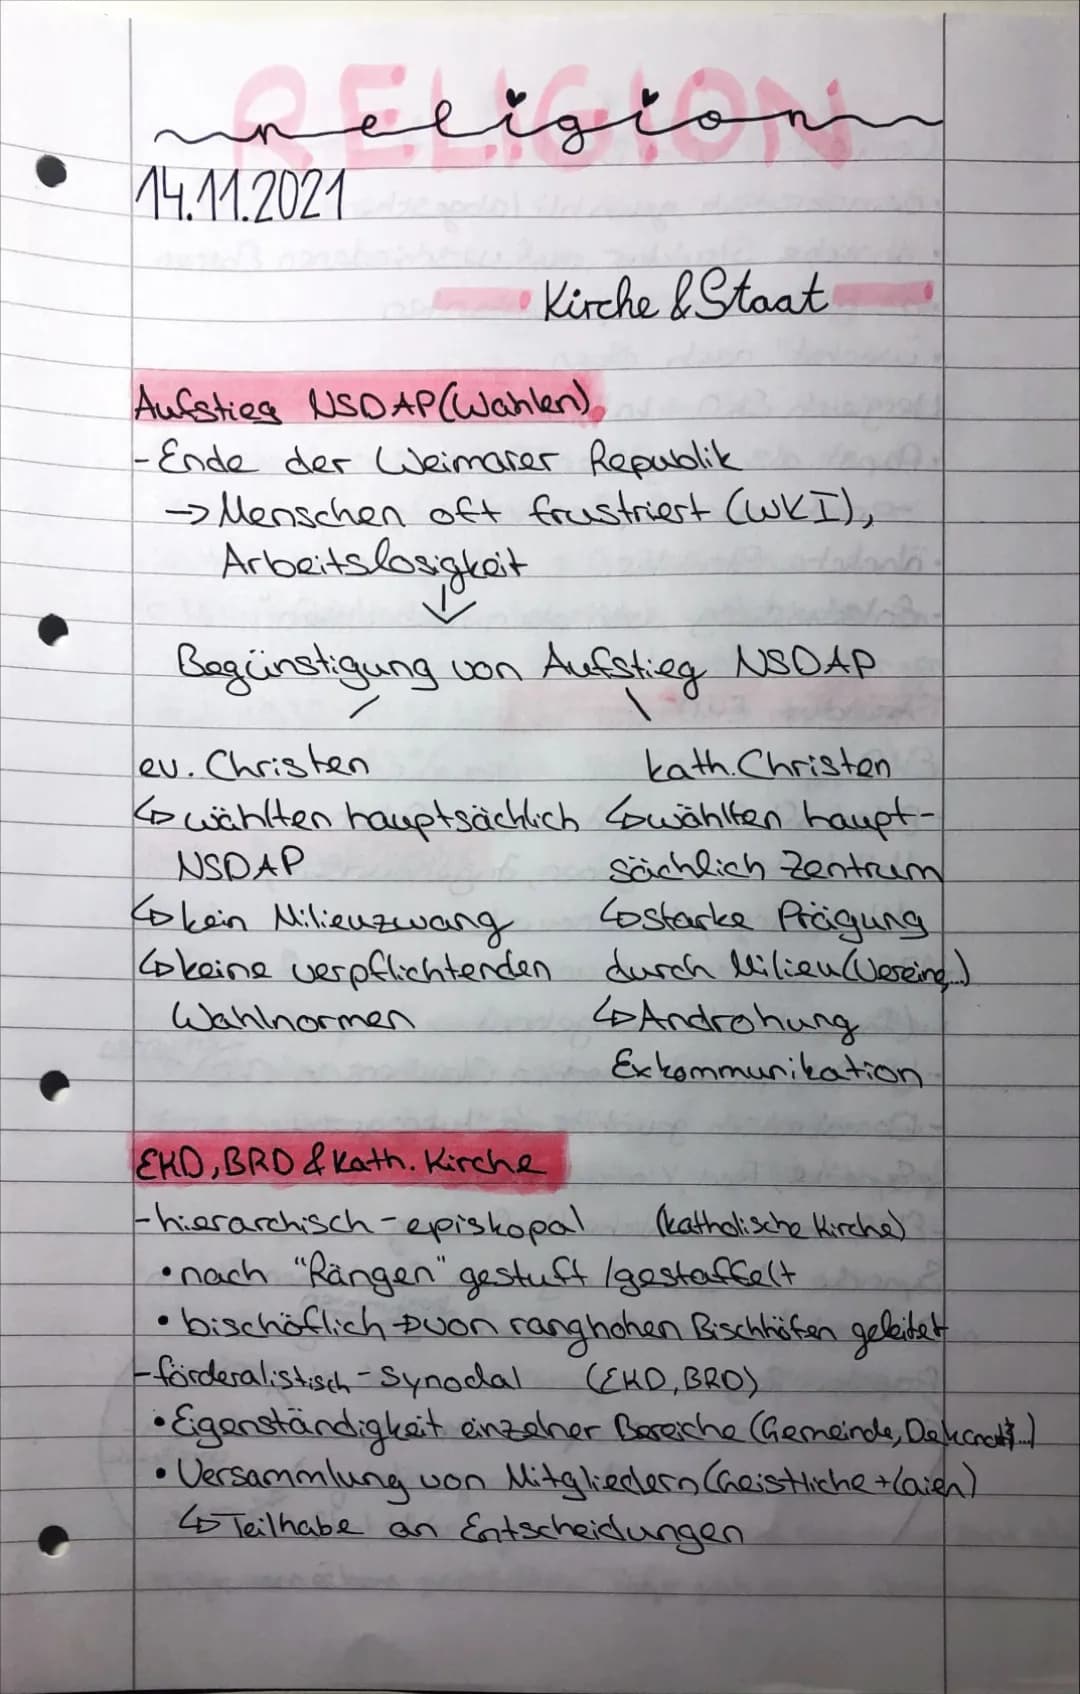 RELIGION
religion
14.11.2021
Kirche & Staat
Aufstieg NSDAP (Wahlen)
- Ende der Weimarer Republik
→ Menschen oft frustriert (WKI),
Arbeitslosigkeit
↓
Begünstigung von Aufstieg NSDAP
ev. Christen
↳ wählten hauptsächlich
NSDAP
↳ kein Milieuzwang
↳ keine verpflichtenden
Wahlnormen
kath. Christen
↳ wählten haupt-
sächlich Zentrum
↳ starke Prägung
durch Milieu (Vereine,..)
↳ Androhung
Exkommunikation
EKD, BRD & kath. Kirche
- hierarchisch - episkopal (katholische Kirche)
• nach "Rängen" gestuft / gestaffelt
• bischöflich → von ranghohen Bischhöfen geleitet
- förderalistisch - Synodal (EKD, BRD)
• Eigenständigkeit einzelner Bereiche (Gemeinde, Dekanat...)
• Versammlung von Mitgliedern (Geistliche + Laien)
↳ Teilhabe an Entscheidungen